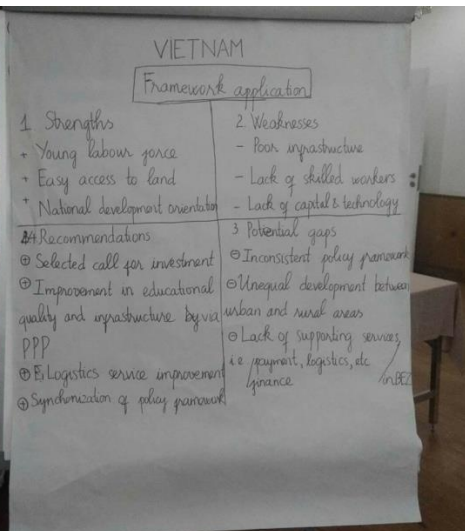 VIETNAM
Framework application
1. Strengths
+ Young labour force
+ Easy access to land
+ National development orientation
2. Weaknesses
- Poor infrastructure
- Lack of skilled workers
- Lack of capital & technology
4 Recommendations
⊕ Selected call for investment
⊕ Improvement in educational
quality and infrastructure by via
PPP
⊕ Logistics service improvement
⊕ Synchronization of policy framework
3 Potential gaps
⊖ Inconsistent policy framework
⊖ Unequal development between
urban and rural areas
⊖ Lack of supporting services,
i.e. payment, logistics, etc
finance
/in BEZ